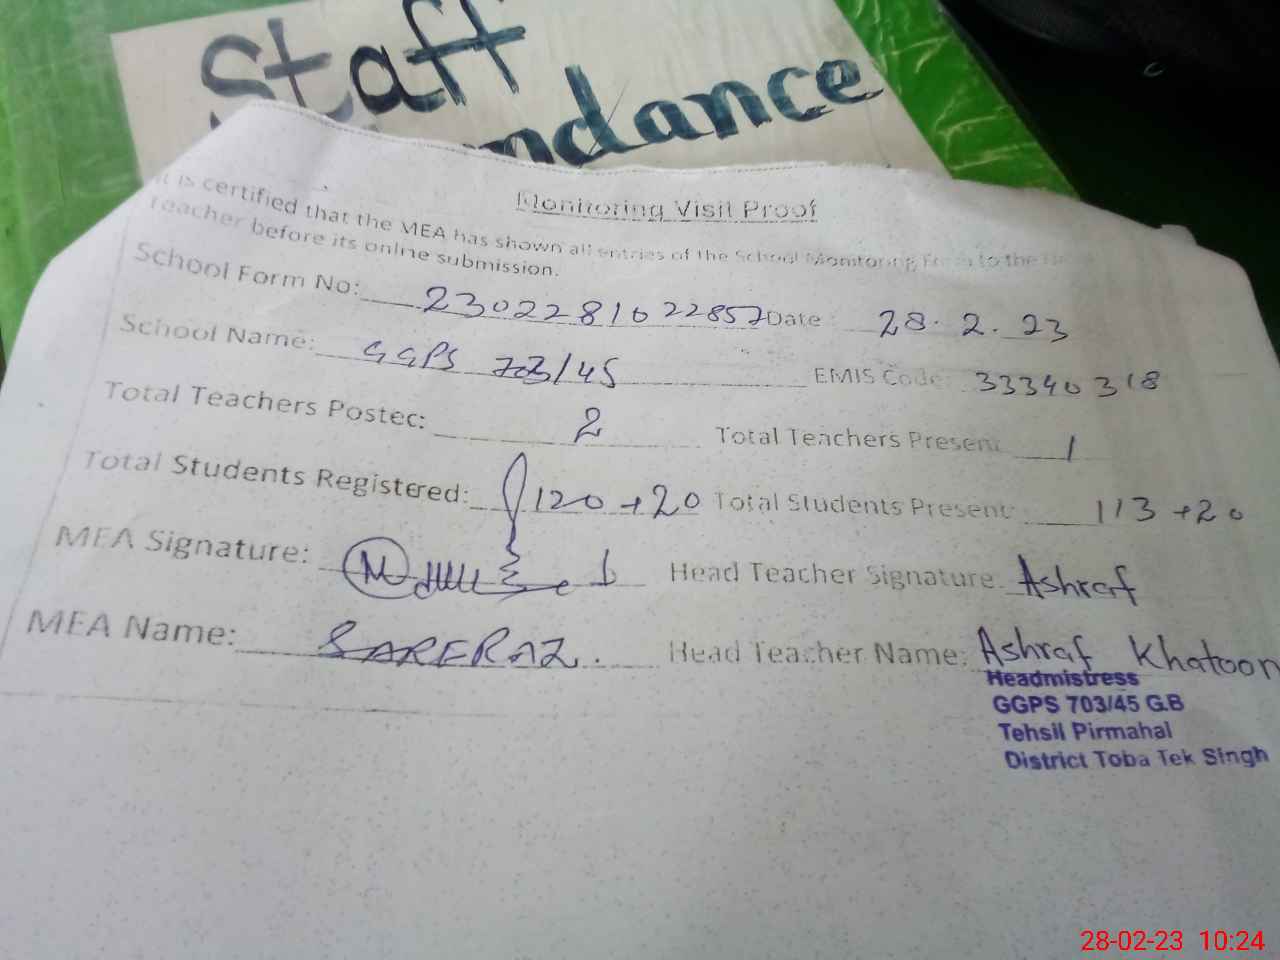 Staff
ndance
Monitoring Visit Proof
It is certified that the MEA has shown all entries of the School Monitoring Form to the
Teacher before its online submission.
School Form No: 23022816 22857 Date: 28.2.23
School Name: GGPS 703/45 EMIS Code: 33340318
Total Teachers Posted: 2 Total Teachers Present: 1
Total Students Registered: 120+20 Total Students Present: 113+20
MEA Signature: Head Teacher Signature: Ashraf
MEA Name: Head Teacher Name: Ashraf Khatoon
Headmistress
GGPS 703/45 G.B
Tehsil Pirmahal
District Toba Tek Singh
28-02-23 10:24